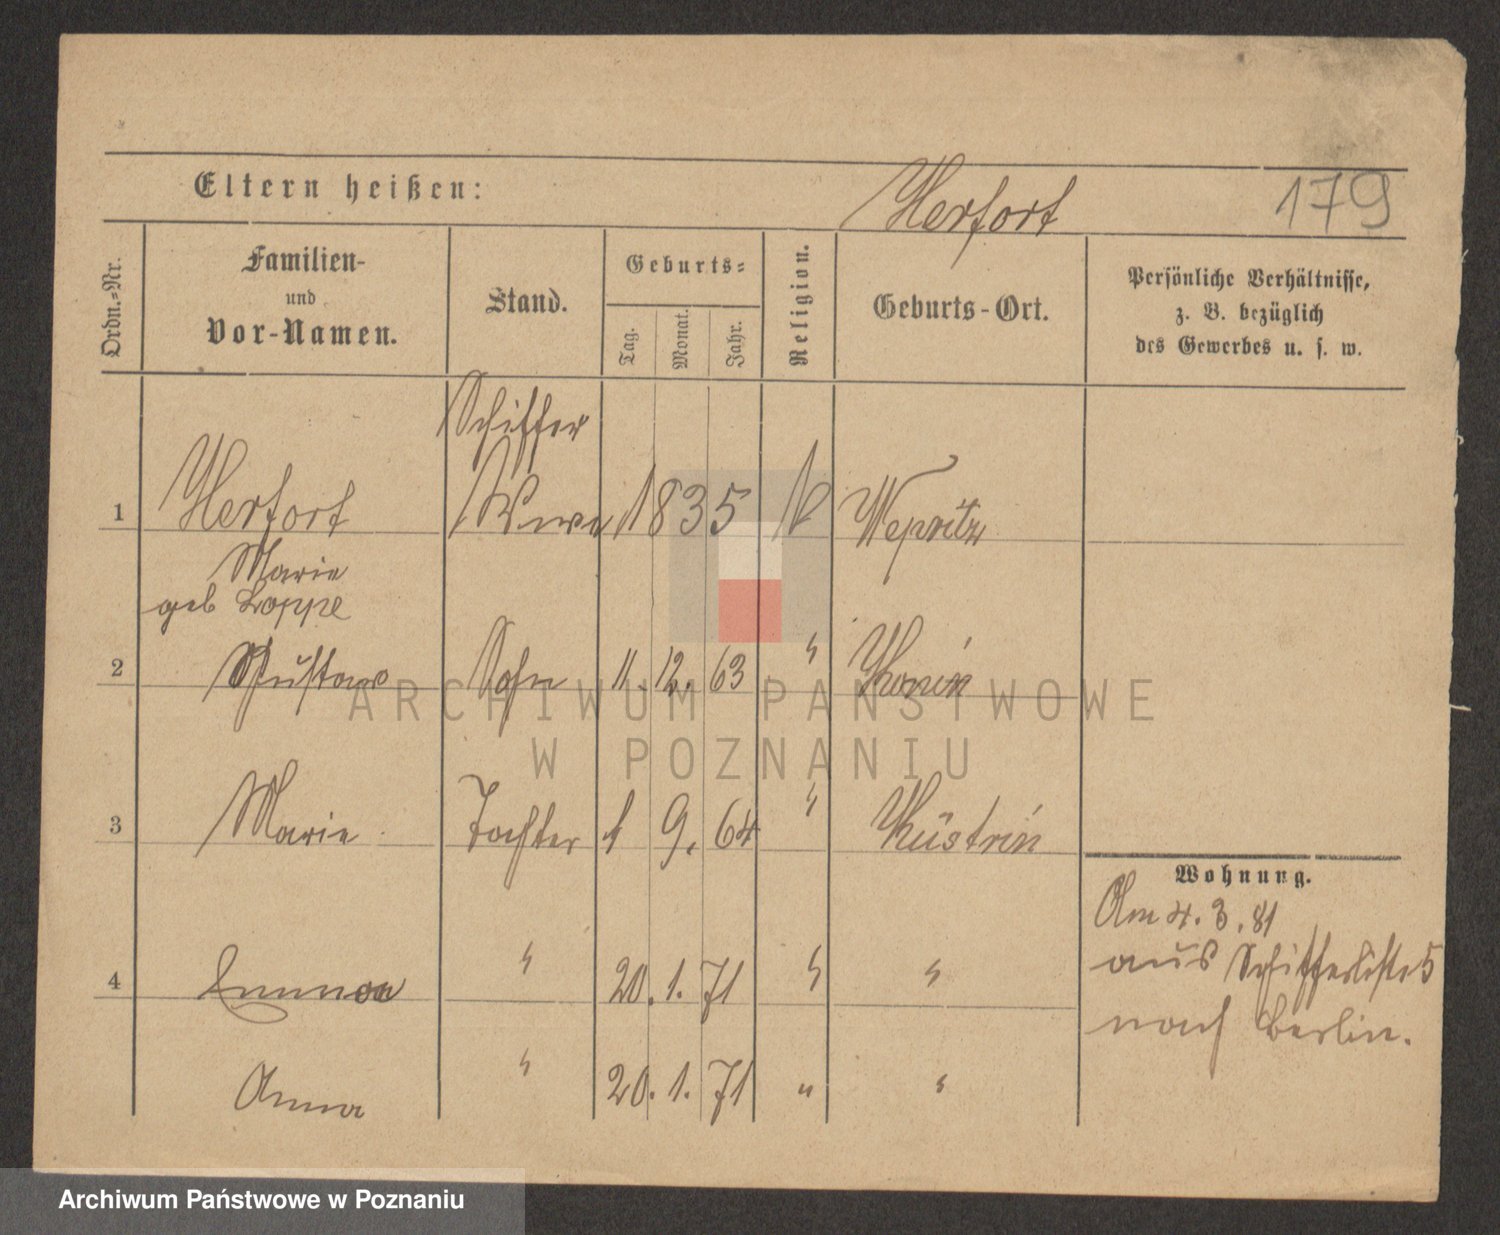 Eltern heißen:
Herfort
179
Ordn.-Nr.
Familien-
und
Vor-Namen.
Stand.
Geburts-
Tag.
Monat.
Jahr.
Religion.
Geburts-Ort.
Persönliche Verhältnisse,
z. B. bezüglich
des Gewerbes u. s. w.
Schiffer
1 Herfort Wwe 1835 Wepritz
Marie
geb Loppe
2 Gustav Sohn 11. 12. 63 " Konin
3 Marie Tochter 1 9. 64 " Küstrin
Wohnung.
Am 4. 3. 81
aus Schifferliste 5
nach Berlin.
4 Emma " 20. 1. 71 " "
Anna " 20. 1. 71 " "
ARCHIWUM PAŃSTWOWE
W POZNANIU
Archiwum Państwowe w Poznaniu